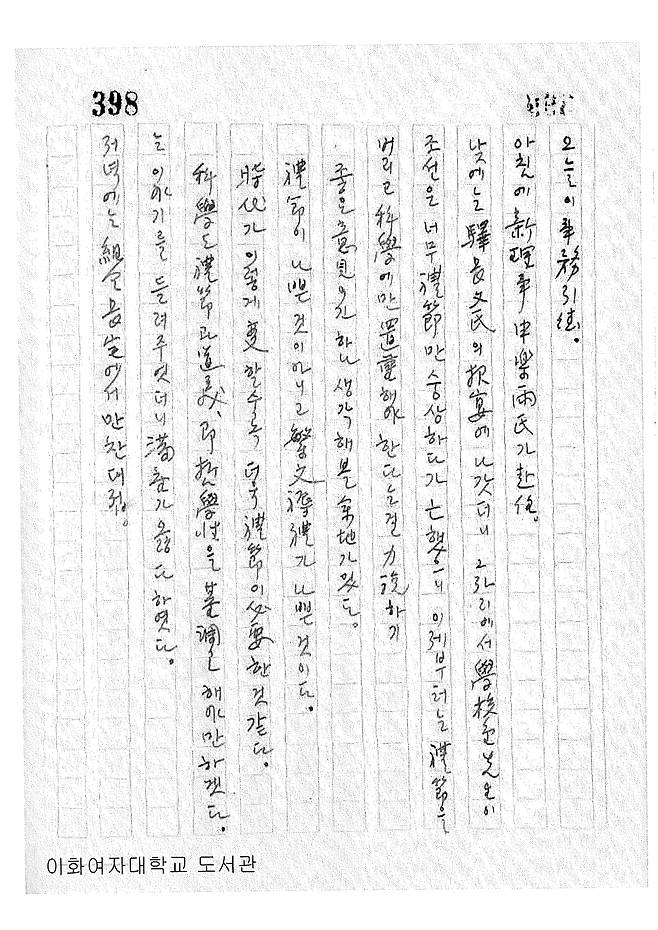 398
오늘이 事務引継。
아침에 新理事 申樂雨氏가 赴任。
낮에는 驛長文氏의 招宴에 나갓더니 그 자리에서 學校 先生이
조선은 너무 禮節만 숭상하다가 亡햇으니 이제부터는 禮節을
버리고 科學에만 置重해야 한다는걸 力說하기
좋은 意見이긴 하나 생각해볼 余地가 있다。
禮節이 나쁜 것이 아니고 繁文褥禮가 나쁜 것이다。
時代가 이렇게 変할수록 더욱 禮節이 必要한 것 같다。
科學도 禮節과 道義、即 哲學性을 基調로 해야만 하겟다。
는 이야기를 들려주엇더니 滿座가 옳다 하엿다。
저녁에는 組合長宅에서 만찬대접。
이화여자대학교 도서관